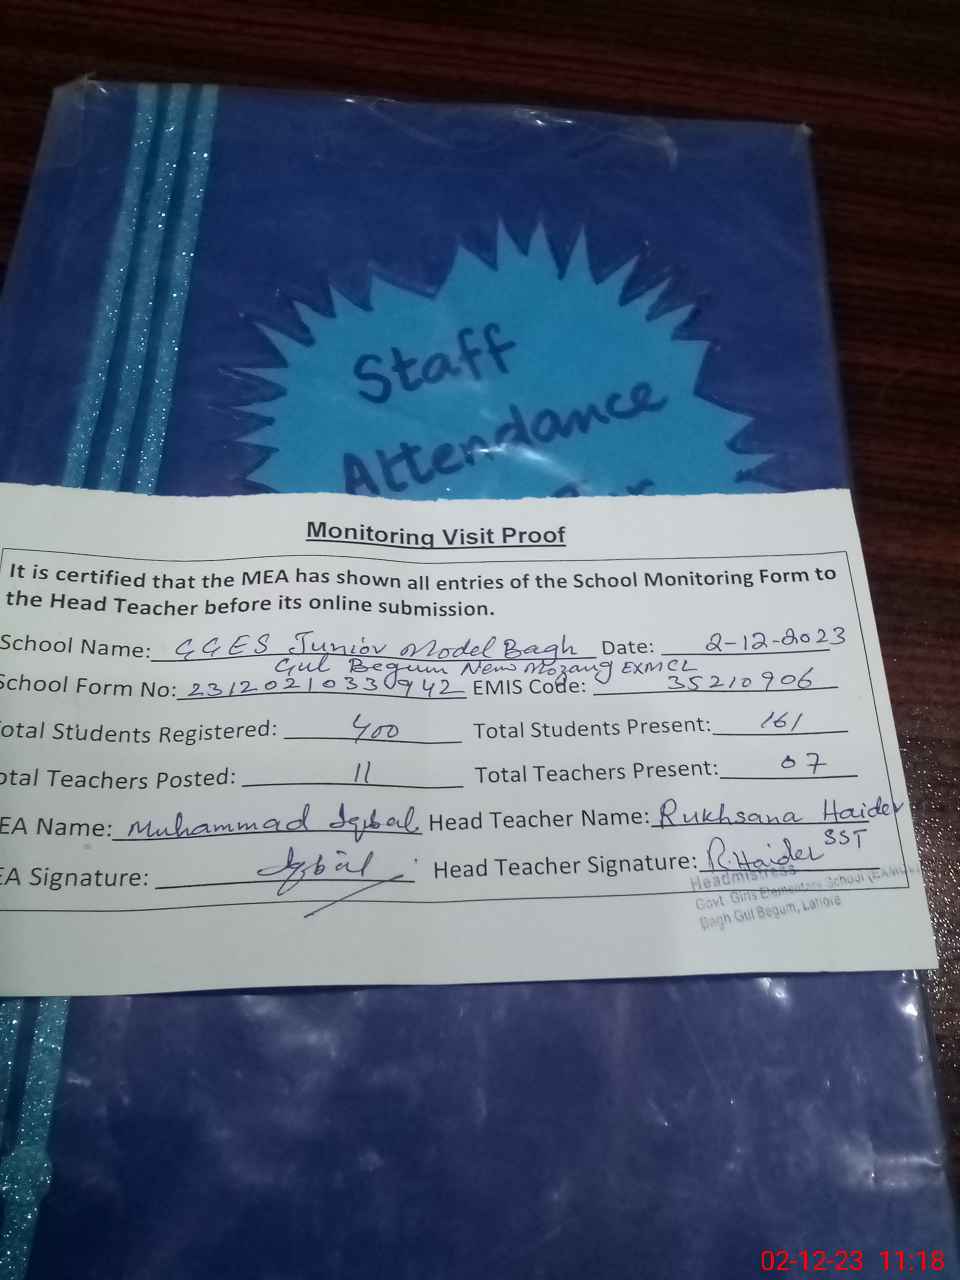 Staff
Attendance
Monitoring Visit Proof
It is certified that the MEA has shown all entries of the School Monitoring Form to
the Head Teacher before its online submission.
School Name: GGES Junior Model Bagh Date: 2-12-2023
Gul Begum New Mozang EXMCL
School Form No: 23120210330942 EMIS Code: 35210906
otal Students Registered: 400 Total Students Present: 161
otal Teachers Posted: 11 Total Teachers Present: 07
EA Name: Muhammad Iqbal Head Teacher Name: Rukhsana Haider
SST
EA Signature: Iqbal Head Teacher Signature: R.Haider
Headmistress
Govt. Girls Elementary School
Bagh Gul Begum, Lahore
02-12-23 11:18